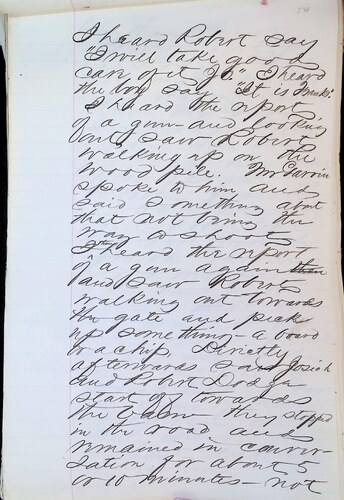 I heard Robert say
"I will take good
care of it, Jo." I heard
the boy say "It is Frank's"
I heard the report
of a gun and looking
out saw Robert
walking up on the
wood pile. Mr
spoke to him and
said something abt
that not being the
way to shoot
I then heard the report
of a gun again then
and saw Robert
walking out towards
the gate and pick
up something a board
or a chip. Directly
afterwards saw Josiah
and Robert Dodge
start off towards
the barn they stopped
in the road and
remained in conver-
sation for about 5
or 10 minutes - not